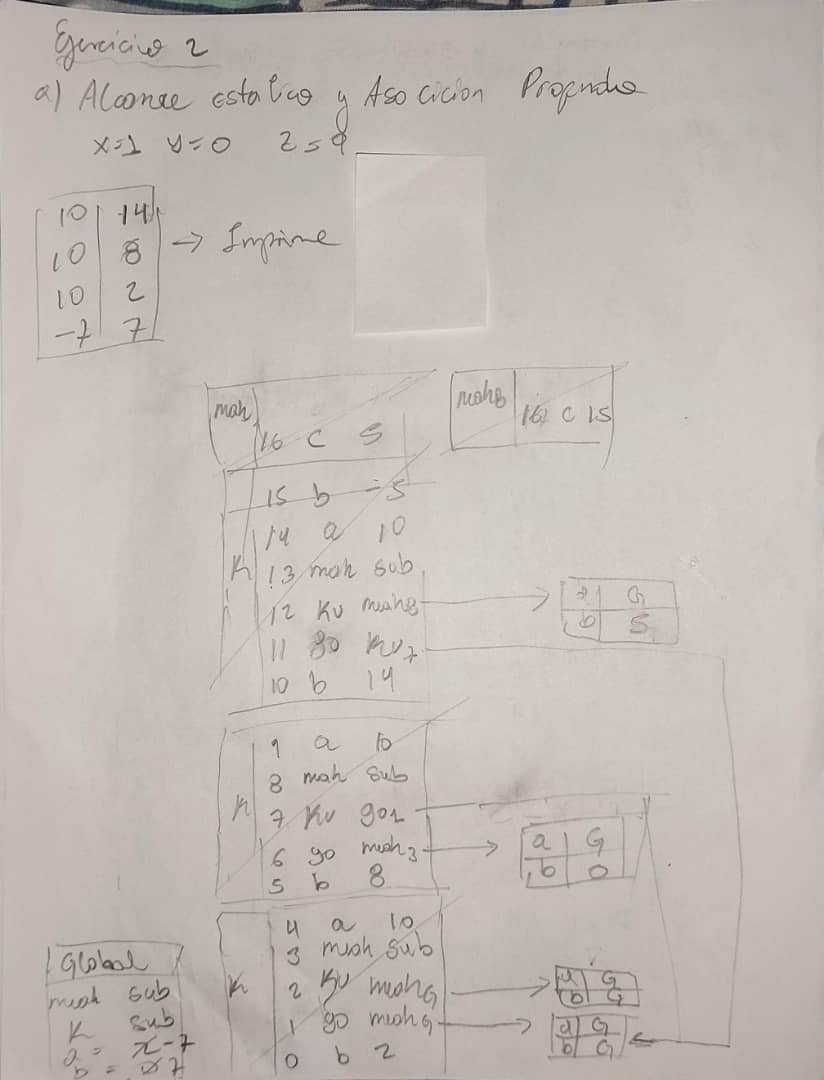 Ejercicio 2
a) Alcance estatico y Asocicion Profunda
x=1 y=0 z=9
10 14
10 8 → Imprime
10 2
-7 7
mah
16 C 5
mahg
16 C 15
15 b -5
14 a 10
K 13 mah sub
12 Ku mahg
a G
b 5
11 go Ku7
10 b 14
9 a 10
8 mah sub
K 7 Ku go1
6 go mah3
a G
b 0
5 b 8
4 a 10
3 mah sub
K 2 Ku mahG
a G
b G
1 go mahG
a G
b G
0 b 2
Global
mah sub
K sub
a = -7
b = 7